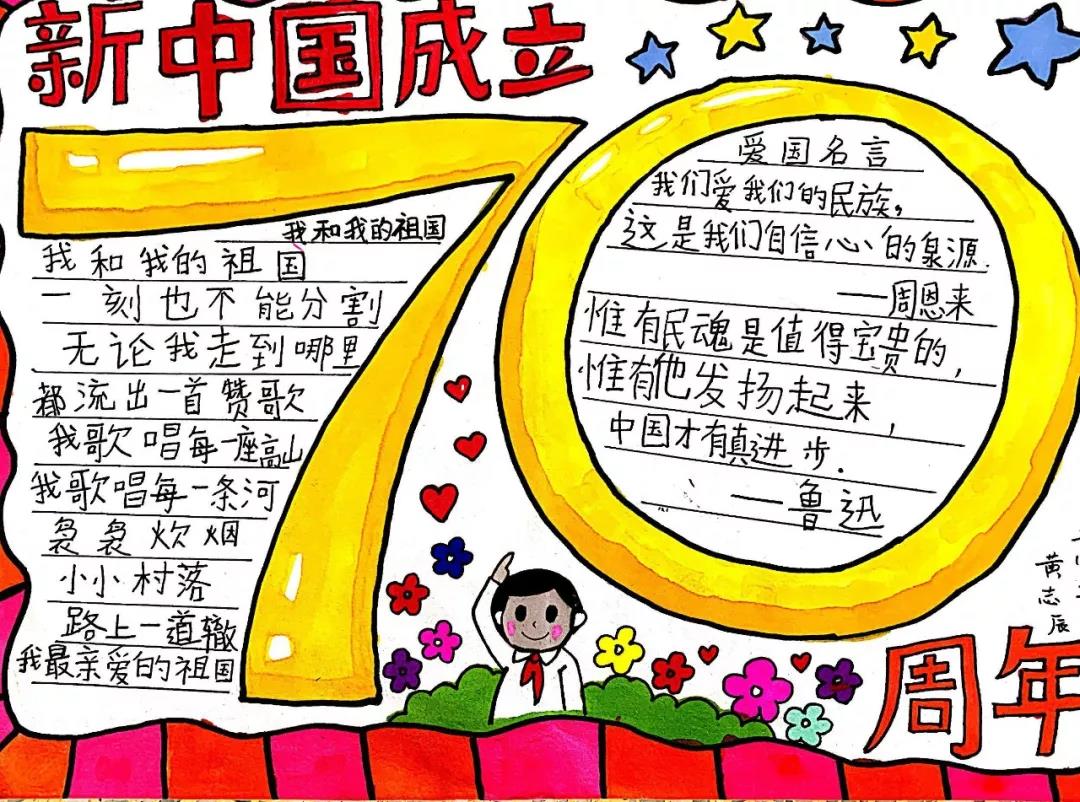 新中国成立
70
周年
我和我的祖国
我和我的祖国
一刻也不能分割
无论我走到哪里
都流出一首赞歌
我歌唱每一座高山
我歌唱每一条河
袅袅炊烟
小小村落
路上一道辙
我最亲爱的祖国
爱国名言
我们爱我们的民族，
这是我们自信心的泉源
——周恩来
惟有民魂是值得宝贵的，
惟有他发扬起来，
中国才有真进步.
——鲁迅
黄志辰